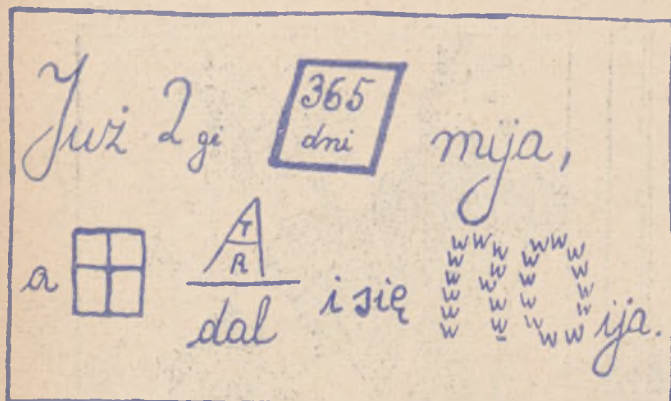 Już 2gi 365 dni mija,
a A T R dal i się wwwwwwwwwwwwwwwwwwwwwwwwwwwwwwwwwwww ija.